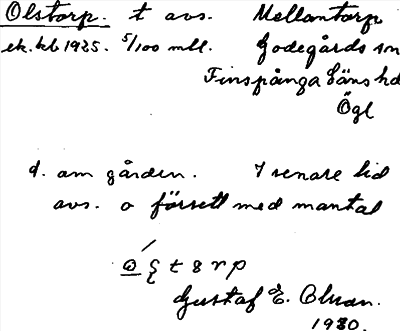 Olstorp. t avs. Mellantorp
ek. kb 1935. 5/100 mtl. Godegårds sn
Finspånga läns hd
Ögl
d. om gården. I senare tid
avs. o försett med mantal
Gustaf E. Olsson.
1930.